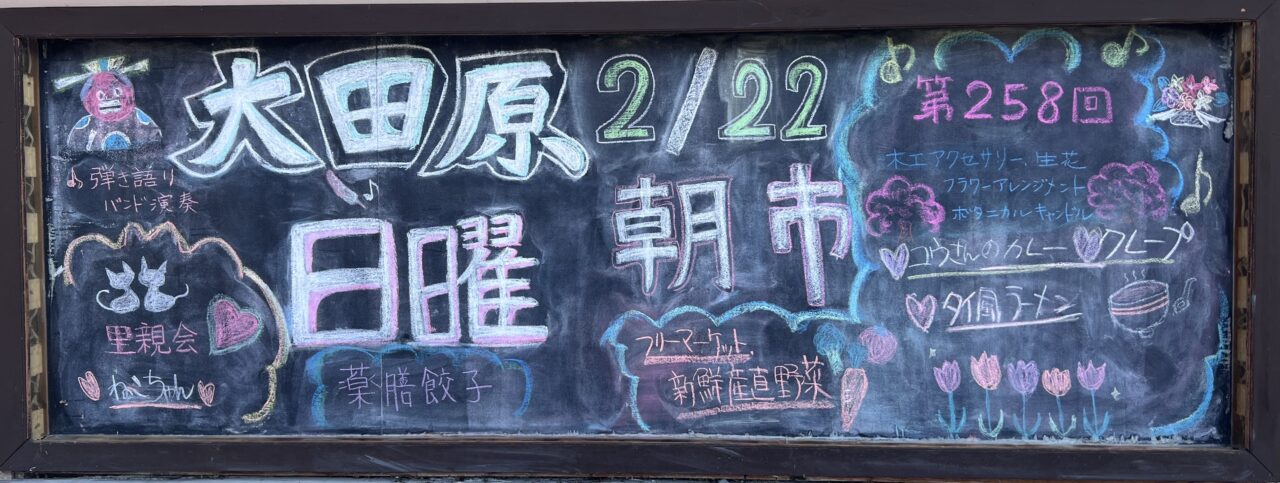 大田原
2/22
日曜
朝市
第258回
弾き語り
バンド演奏
里親会
ねこちゃん
薬膳餃子
フリーマーケット
新鮮産直野菜
木工アクセサリー、生花
フラワーアレンジメント
ボタニカルキャンドル
コウさんのカレー クレープ
タイ風ラーメン